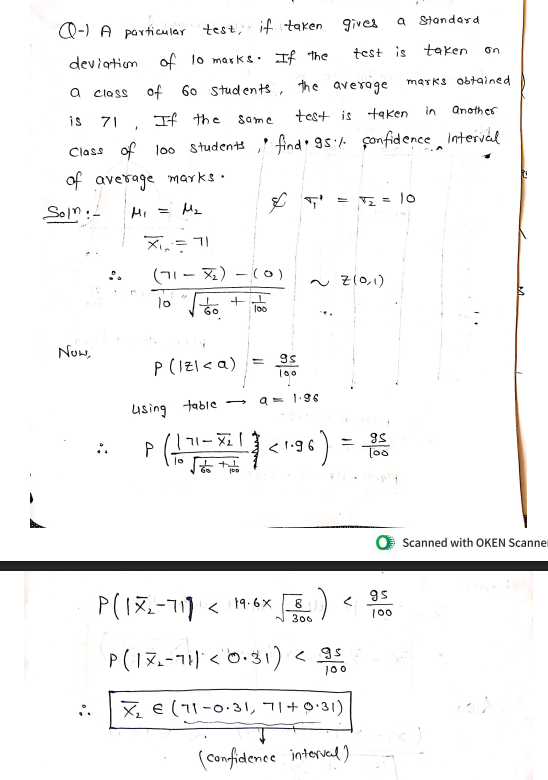 Q-) A particular test, if taken gives a standard
deviation of 10 marks. If the test is taken on
a class of 60 students, the average marks obtained
is 71, If the same test is taken in another
class of 100 students, find 95% confidence interval
of average marks.
Soln:- μ₁ = μ₂ & σ₁ = σ₂ = 10
X̄₁ = 71
∴ ((71 - X̄₂) - (0)) / (10 √(1/60 + 1/100)) ~ Z(0,1)
Now,
P(|Z| < a) = 95/100
using table → a = 1.96
∴ P(|71 - X̄₂| / (10 √(1/60 + 1/100)) < 1.96) = 95/100
Scanned with OKEN Scanne
P(|X̄₂-71| < 19.6 × √(8/300)) < 95/100
P(|X̄₂-71| < 0.31) < 95/100
∴ X̄₂ ∈ (71-0.31, 71+0.31)
(confidence interval)